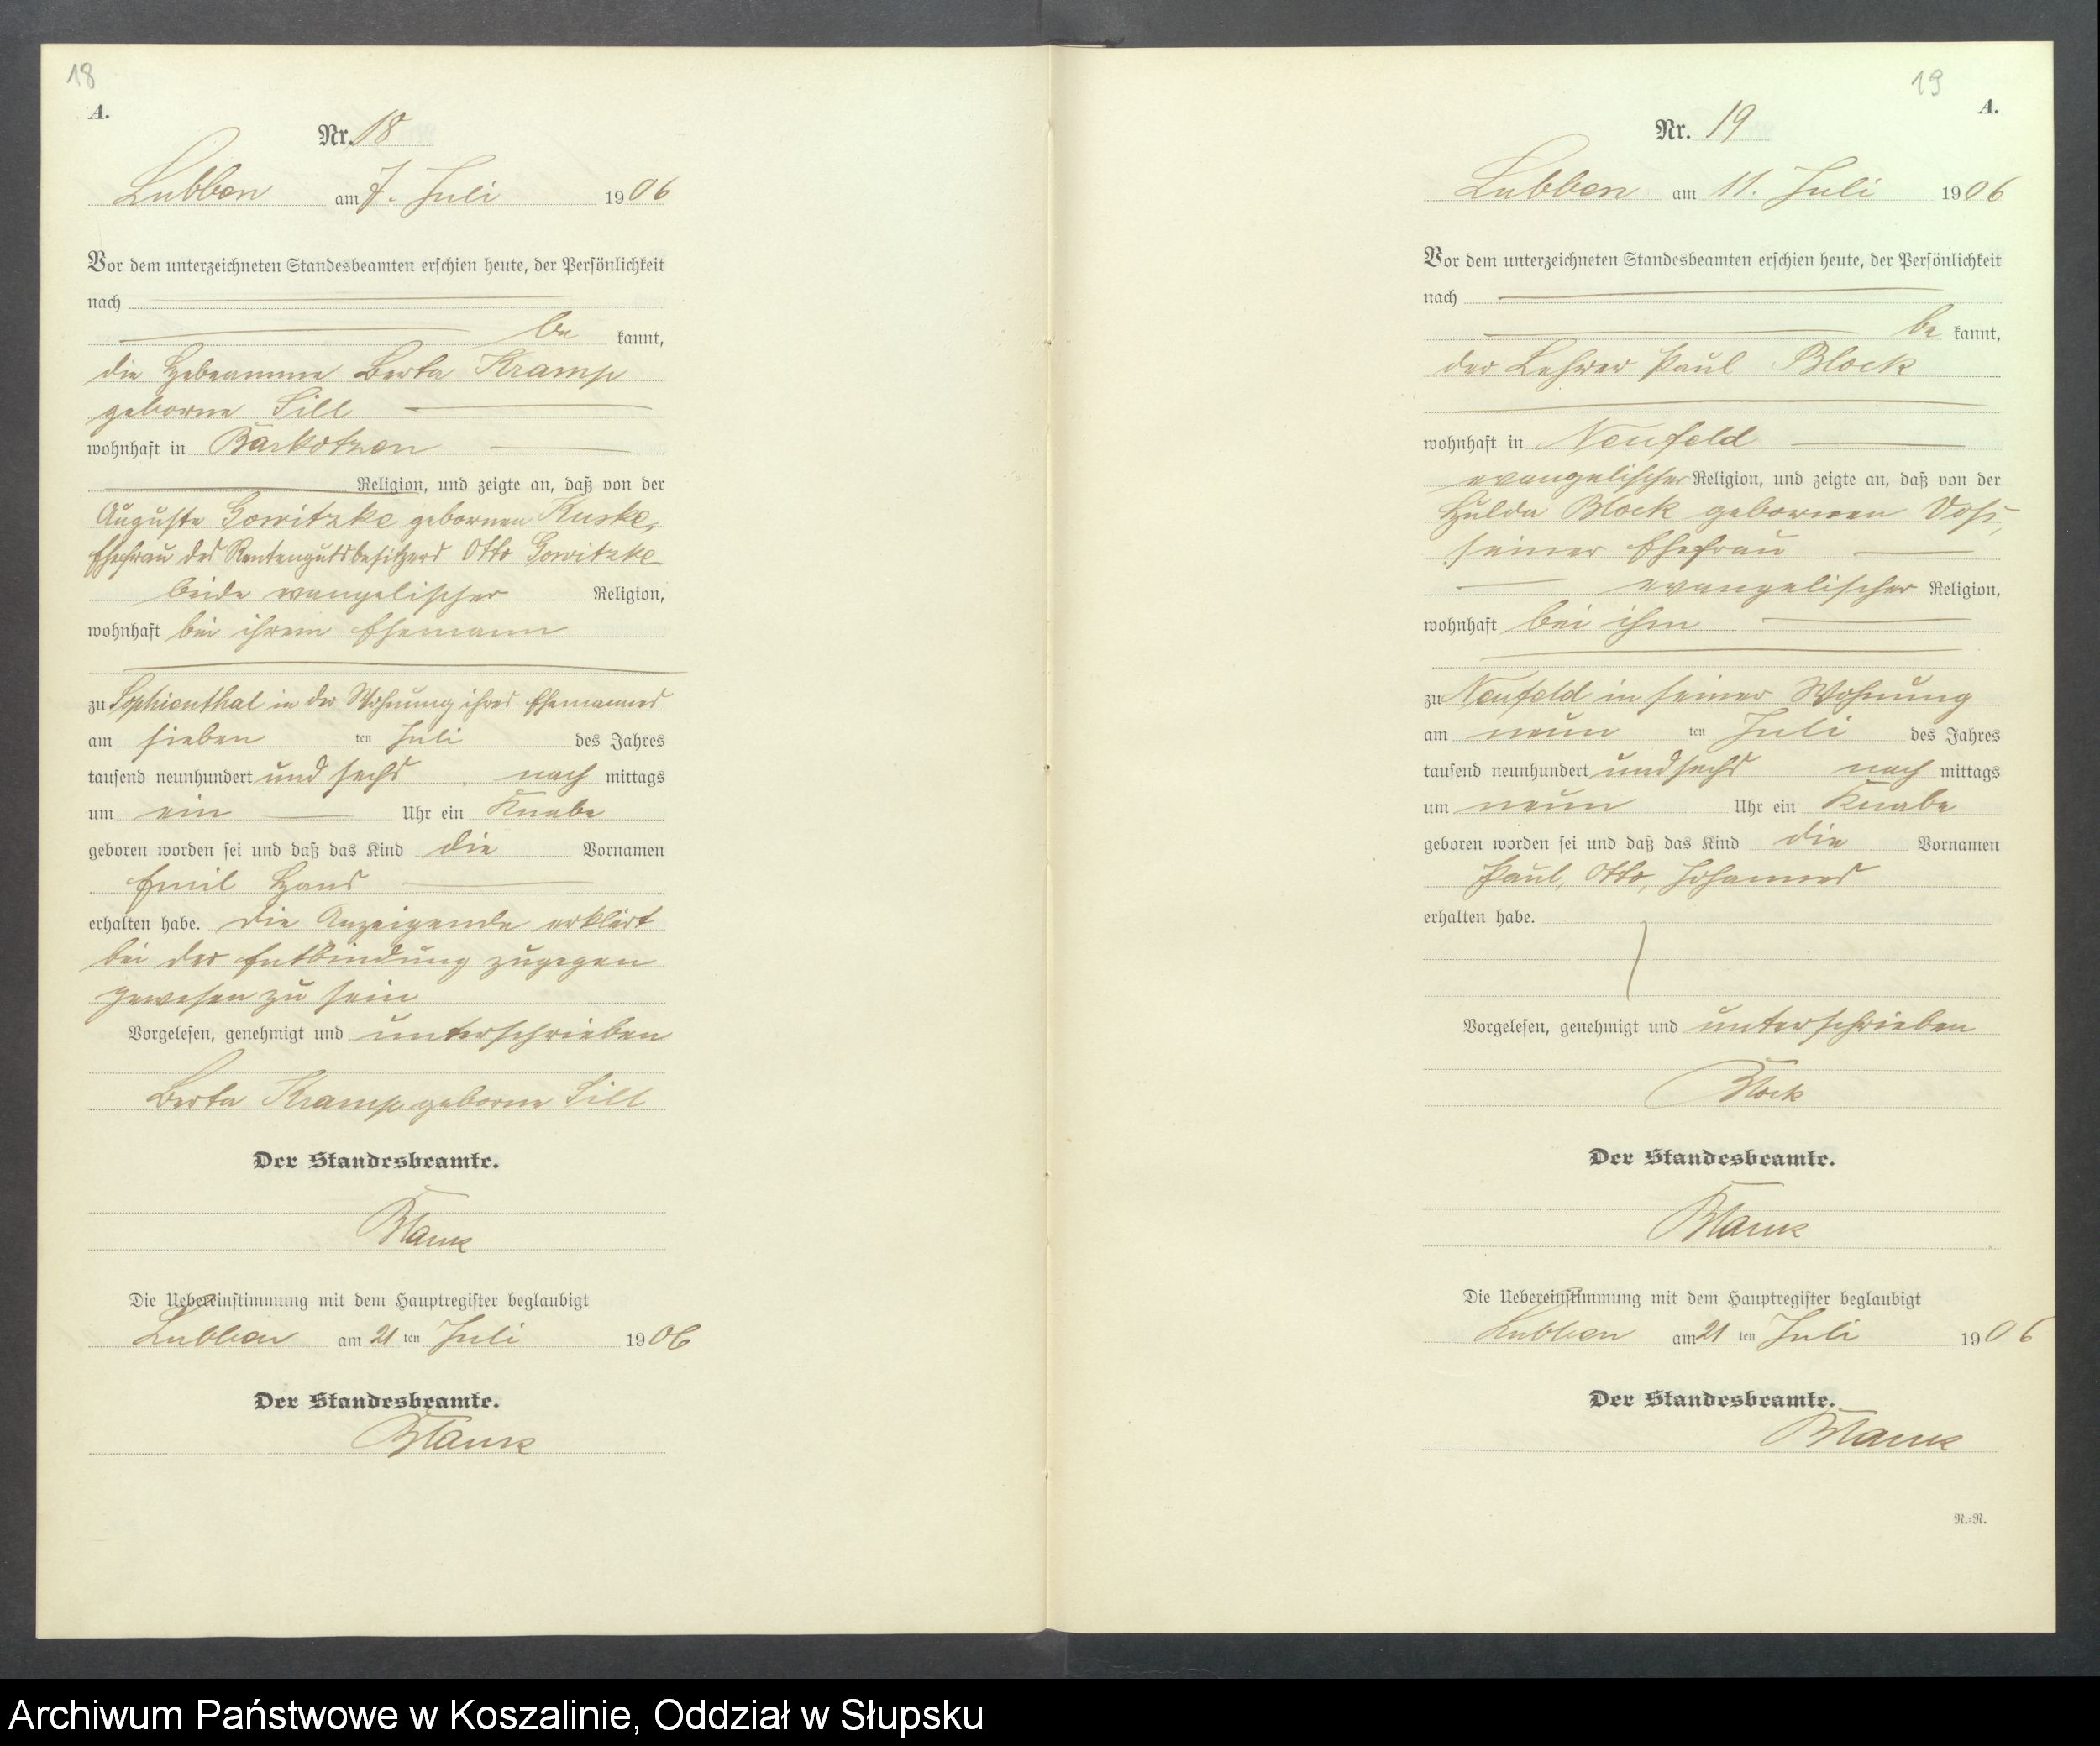 18
A.
Nr. 18
Lubben am 7. Juli 1906
Vor dem unterzeichneten Standesbeamten erschien heute, der Persönlichkeit
nach
be kannt,
die Hebeamme Berta Kramp
geborne Sill
wohnhaft in Barkotzen
Religion, und zeigte an, daß von der
Auguste Gowitzke gebornen Kuske,
Ehefrau des Rentengutsbesitzers Otto Gowitzke
beide evangelischer Religion,
wohnhaft bei ihrem Ehemann
zu Sophienthal in der Wohnung ihres Ehemannes
am sieben ten Juli des Jahres
tausend neunhundert und sechs nach mittags
um ein Uhr ein Knabe
geboren worden sei und daß das Kind die Vornamen
Emil Hans
erhalten habe. Die Anzeigende erklärt
bei der Entbindung zugegen
gewesen zu sein
Vorgelesen, genehmigt und unterschrieben
Berta Kramp geborne Sill
Der Standesbeamte.
Blank
Die Uebereinstimmung mit dem Hauptregister beglaubigt
Lubben am 21 ten Juli 1906
Der Standesbeamte.
Blank
19
A.
Nr. 19
Lubben am 11. Juli 1906
Vor dem unterzeichneten Standesbeamten erschien heute, der Persönlichkeit
nach
be kannt,
der Lehrer Paul Block
wohnhaft in Neufeld
evangelischer Religion, und zeigte an, daß von der
Hulda Block gebornen Voß,
seiner Ehefrau
evangelischer Religion,
wohnhaft bei ihm
zu Neufeld in seiner Wohnung
am neun ten Juli des Jahres
tausend neunhundert und sechs nach mittags
um neun Uhr ein Knabe
geboren worden sei und daß das Kind die Vornamen
Paul, Otto, Johannes
erhalten habe.
Vorgelesen, genehmigt und unterschrieben
Block
Der Standesbeamte.
Blank
Die Uebereinstimmung mit dem Hauptregister beglaubigt
Lubben am 21 ten Juli 1906
Der Standesbeamte.
Blank
N.=N.
Archiwum Państwowe w Koszalinie, Oddział w Słupsku